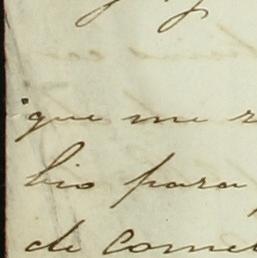 que me
bio para
de comer